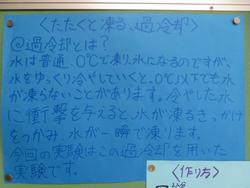 〈たたくと凍る、過冷却〉
◎過冷却とは？
水は普通、0℃で凍り、氷になるのですが、
水をゆっくり冷やしていくと、0℃以下でも水
が凍らないことがあります。冷やした水
に衝撃を与えると、水が凍るきっかけ
をつかみ、水が一瞬で凍ります。
今回の実験はこの過冷却を用いた
実験です。
〈作り方〉